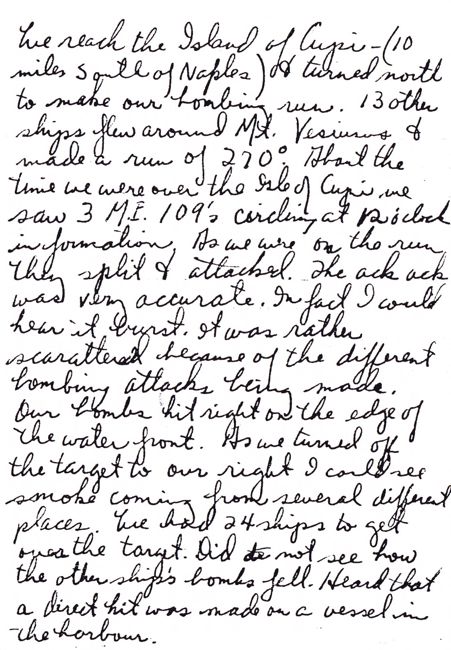 We reach the Island of Cupi - (10
miles South of Naples) & turned north
to make our bombing run. 13 other
ships flew around Mt. Vesiuvus &
made a run of 270°. About the
time we were over the Isle of Cupi we
saw 3 M.E. 109's circling at 12 o'clock
in formation. As we were on the run
they split & attacked. The ack ack
was very accurate. In fact I could
hear it burst. It was rather
scarattered because of the different
bombing attacks being made.
Our bombs hit right on the edge of
the water front. As we turned off
the target to our right I could see
smoke coming from several different
places. We had 24 ships to get
over the target. Did not see how
the other ship's bombs fell. Heard that
a direct hit was made on a vessel in
the harbour.